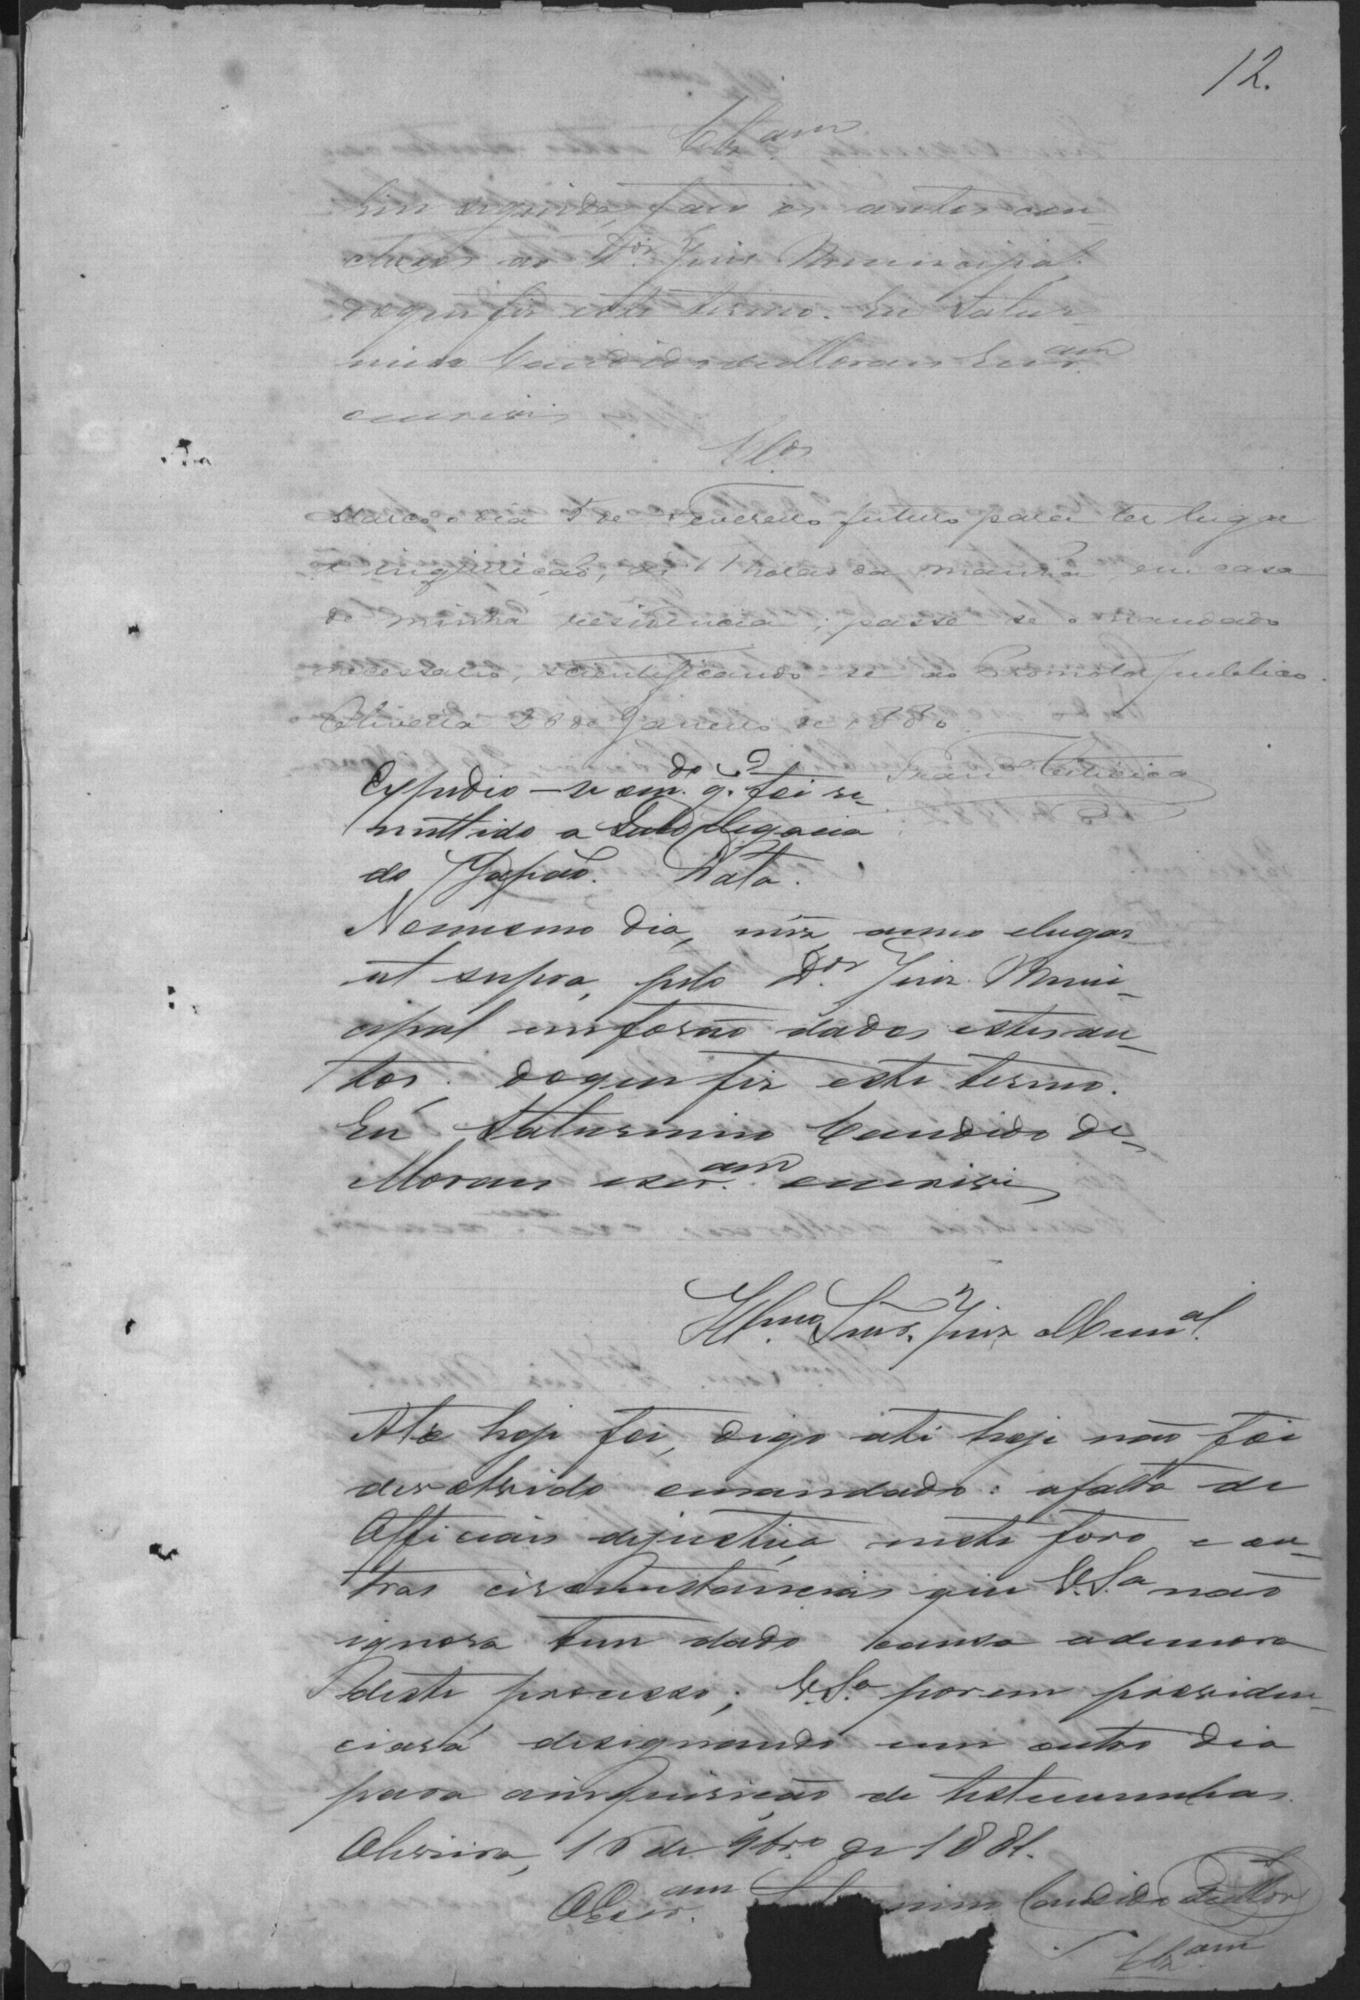 12.
Clz.am
Em seguida, faço os autos con-
clusos ao D.or Juiz Municipal.
doque fiz este termo. Eu Satur-
nino Candido de Moraes Escr.am
oescrivi
Cl.os
Marco o dia 5 de Fevereiro futuro para ter lugar
a inquirição, ás 11 horas da manhã, em casa
de minha residencia; passe-se o mandado
necessario, scientificando-se ao Promotor publico.
Oliveira 28 de Janeiro de 1880.
Expedio-se om.do q. foi re-
mettido a Subdelegacia
do Japão. Data.
Nomesmo dia, mez anno elugar
ut supra, pelo D.or Juiz Muni-
cipal mefórão dados estes au-
tos. doque fiz este termo.
Eu Saturnino Candido de
Moraes escr.am oescrivi
Illmo. Snr. Juiz Mun.al
Ate hoje foi, digo até hoje não foi
devolvido omandado: afalta de
Officiaes dejustiça neste foro e ou-
tras circumstancias que V.S.a não
ignora tem dado causa ademora
deste processo; V.S.a porem providen-
ciará designando um outro dia
para ainquirição de testemunhas.
Oliveira, 16 de 9br.o de 1881.
OEscr.am Candido
Clz.am